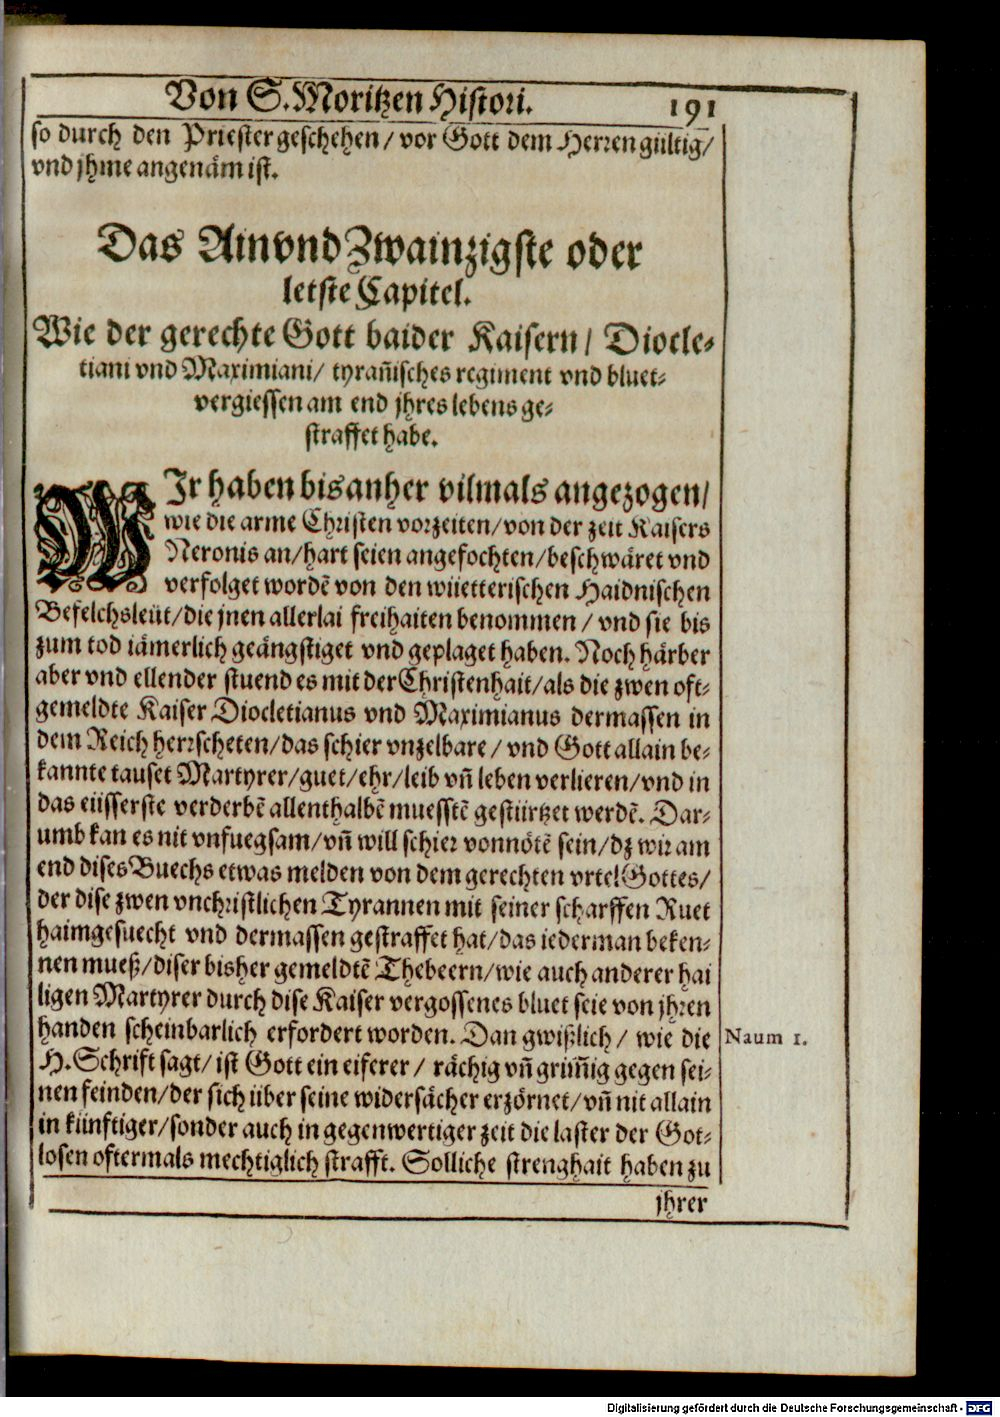 Von S. Moritzen Histori. 191
so durch den Priester geschehen / vor Gott dem Herren gültig /
vnd jhme angenäm ist.
Das Ainvnd Zwainzigste oder
letste Capitel.
Wie der gerechte Gott baider Kaisern / Diocle-
tiani vnd Maximiani / tyrañisches regiment vnd bluet-
vergiessen am end jhres lebens ge-
straffet habe.
WIr haben bisanher vilmals angezogen /
wie die arme Christen vorzeiten / von der zeit Kaisers
Neronis an / hart seien angefochten / beschwäret vnd
verfolget wordẽ von den wüetterischen Haidnischen
Befelchsleüt / die jnen allerlai freihaiten benommen / vnd sie bis
zum tod iämerlich geängstiget vnd geplaget haben. Noch härber
aber vnd ellender stuend es mit der Christenhait / als die zwen oft-
gemeldte Kaiser Diocletianus vnd Maximianus dermassen in
dem Reich herrscheten / das schier vnzelbare / vnd Gott allain be-
kannte tauset Martyrer / guet / ehr / leib vñ leben verlieren / vnd in
das eüsserste verderbẽ allenthalbẽ muesstẽ gestürtzet werdẽ. Dar-
umb kan es nit vnfuegsam / vñ will schier vonnötẽ sein / dz wir am
end dises Buechs etwas melden von dem gerechten vrtel Gottes /
der dise zwen vnchristlichen Tyrannen mit seiner scharffen Ruet
haimgesuecht vnd dermassen gestraffet hat / das iederman beken-
nen mueß / diser bisher gemeldtẽ Thebeern / wie auch anderer hai
ligen Martyrer durch dise Kaiser vergossenes bluet seie von jhren
handen scheinbarlich erfordert worden. Dan gwißlich / wie die
Naum 1.
H. Schrift sagt / ist Gott ein eiferer / rächig vñ grim̃ig gegen sei-
nen feinden / der sich über seine widersächer erzörnet / vñ nit allain
in künftiger / sonder auch in gegenwertiger zeit die laster der Got-
losen oftermals mechtiglich strafft. Solliche strenghait haben zu
jhrer
Digitalisierung gefördert durch die Deutsche Forschungsgemeinschaft - DFG